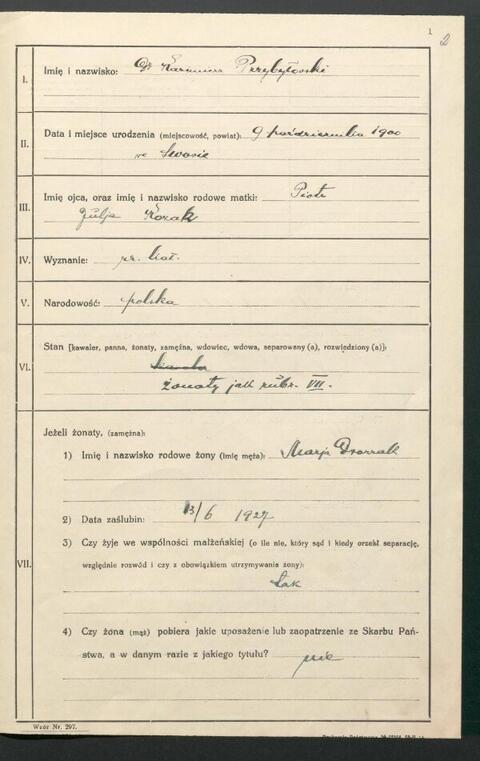 1
2
I.
Imię i nazwisko: Dr Kazimierz Przybyłowski
II.
Data i miejsce urodzenia (miejscowość, powiat): 9 października 1900
we Lwowie
III.
Imię ojca, oraz imię i nazwisko rodowe matki: Piotr
Julja Kozak
IV.
Wyznanie: rz. kat.
V.
Narodowość: polska
VI.
Stan [kawaler, panna, żonaty, zamężna, wdowiec, wdowa, separowany(a), rozwiedziony(a)]:
żonaty jak rubr. VII.
VII.
Jeżeli żonaty, (zamężna):
1) Imię i nazwisko rodowe żony (imię męża): Marja Dworzak
2) Data zaślubin: 13/6 1927
3) Czy żyje we wspólności małżeńskiej (o ile nie, który sąd i kiedy orzekł separację,
względnie rozwód i czy z obowiązkiem utrzymywania żony):
tak
4) Czy żona (mąż) pobiera jakie uposażenie lub zaopatrzenie ze Skarbu Pań-
stwa, a w danym razie z jakiego tytułu? nie
Wzór Nr. 297.